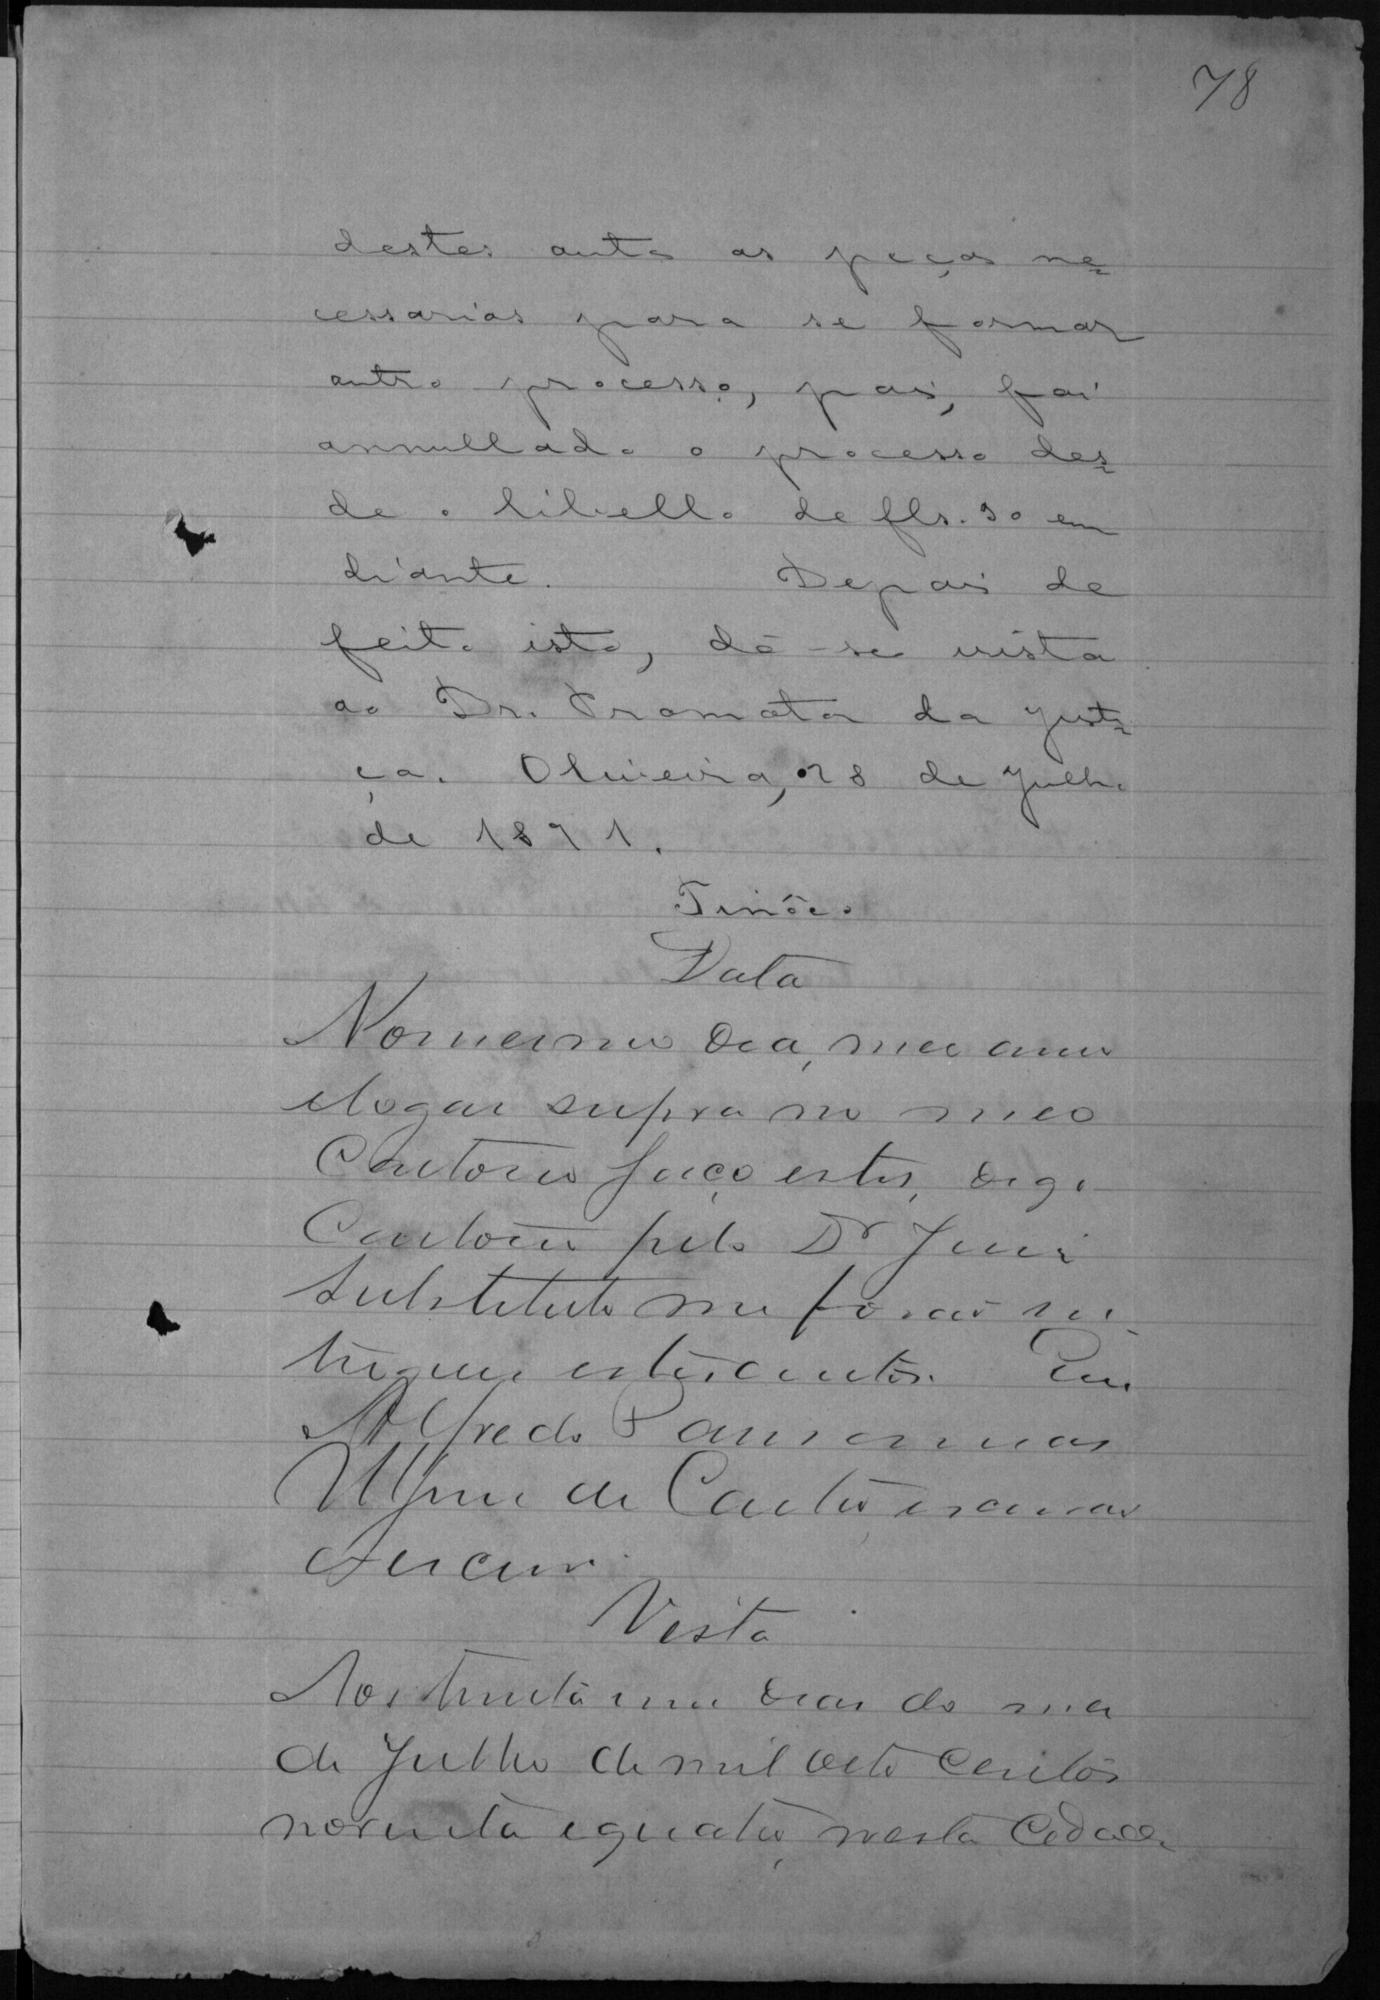 78
destes autos as peças ne=
cessarias para se formar
outro processo, pois, foi
annullado o processo des=
de o libello de fls. 30 em
diante. Depois de
feito isto, dê-se vista
ao Dr. Promotor da Justi=
ça. Oliveira, 28 de Julho
de 1891.
Tinôco
Data
No mesmo dia, mez anno
e logar supra no meo
Cartorio faço estes, digo
Cartorio pelo Dr Juiz
Substituto me forão en
tregues estes autos. Eu
Alfredo
de Castro escrivão
escrevi.
Vista
Aos trinta e um dias do mez
de Julho de mil oito centos
noventa e quatro, nesta Cidade